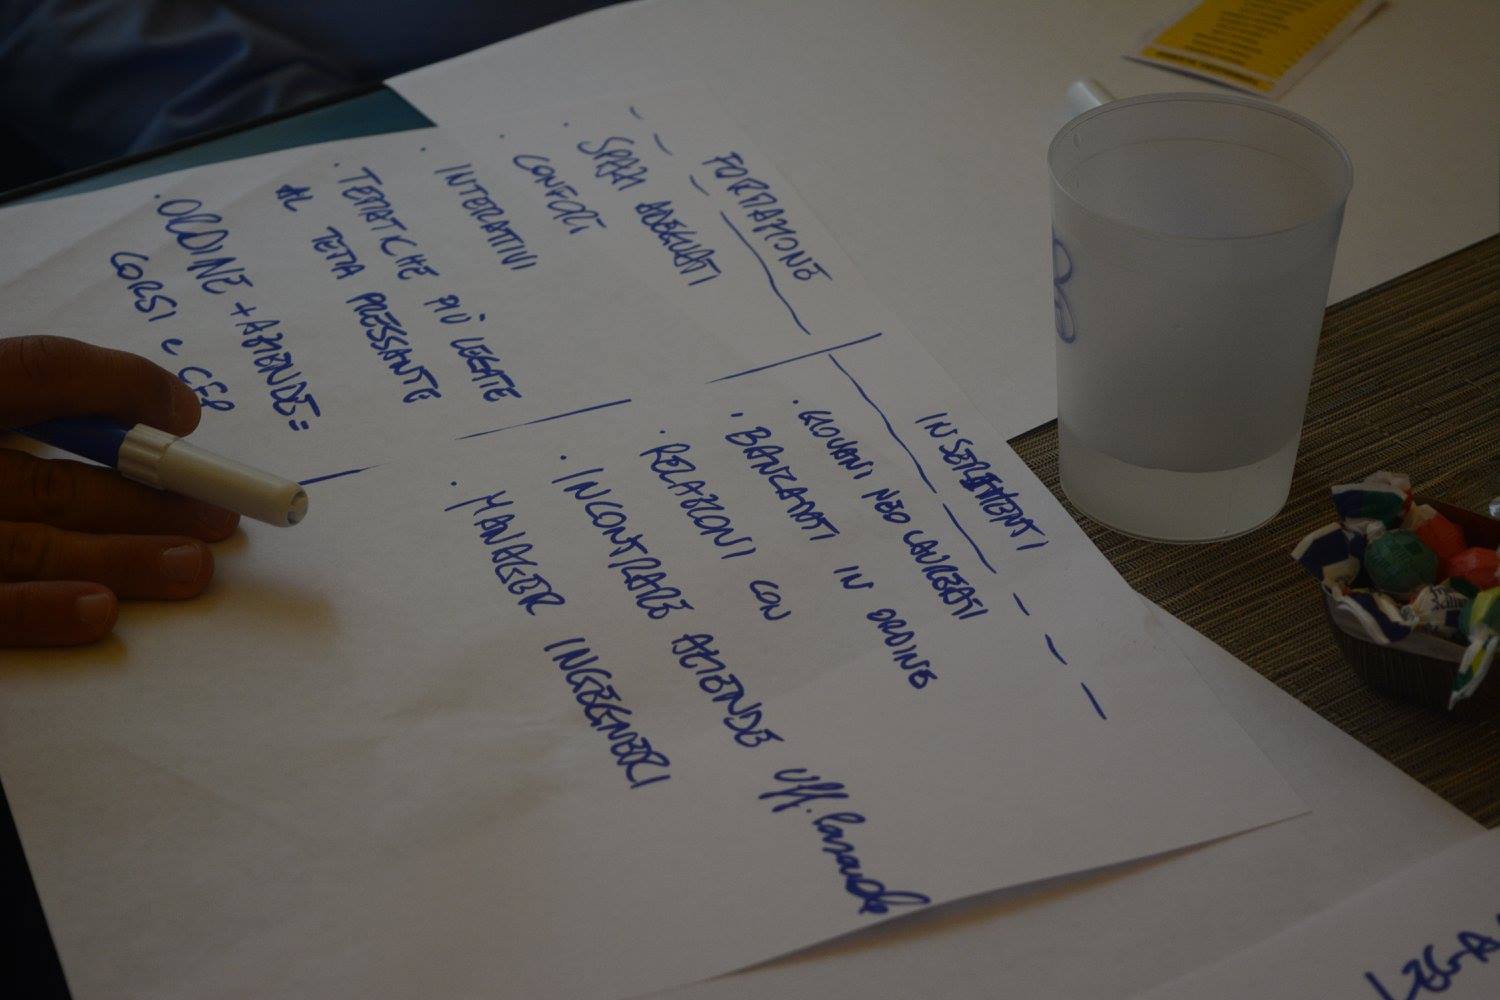 FORMAZIONE
· SPAZI ADEGUATI
· CONFORT
· INTERATTIVI
· TEMATICHE PIÙ LEGATE
AL TEMA PRESSANTE
· ORDINE + AZIENDE =
CORSI e CFP
INSERIMENTI
· GIOVANI NEO LAUREATI
· BANZANATI IN ORDINE
· RELAZIONI CON
· INCONTRARE AZIENDE Uff.
· MANAGER INGEGNERI